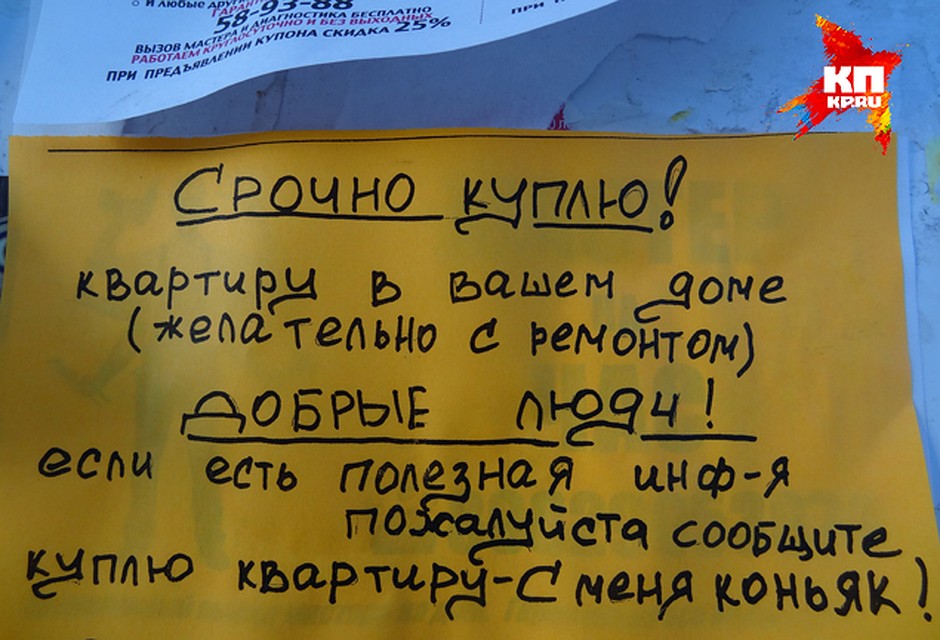 О и любые
58-93-88
ВЫЗОВ МАСТЕРА И ДИАГНОСТИКА БЕСПЛАТНО
РАБОТАЕМ КРУГЛОСУТОЧНО И БЕЗ ВЫХОДНЫХ
ПРИ ПРЕДЪЯВЛЕНИИ КУПОНА СКИДКА 25%
ПРИ
КП
KP.RU
СРОЧНО КУПЛЮ!
квартиру в вашем доме
(желательно с ремонтом)
ДОБРЫЕ ЛЮДИ!
если есть полезная инф-я
пожалуйста сообщите
куплю квартиру-С меня коньяк!